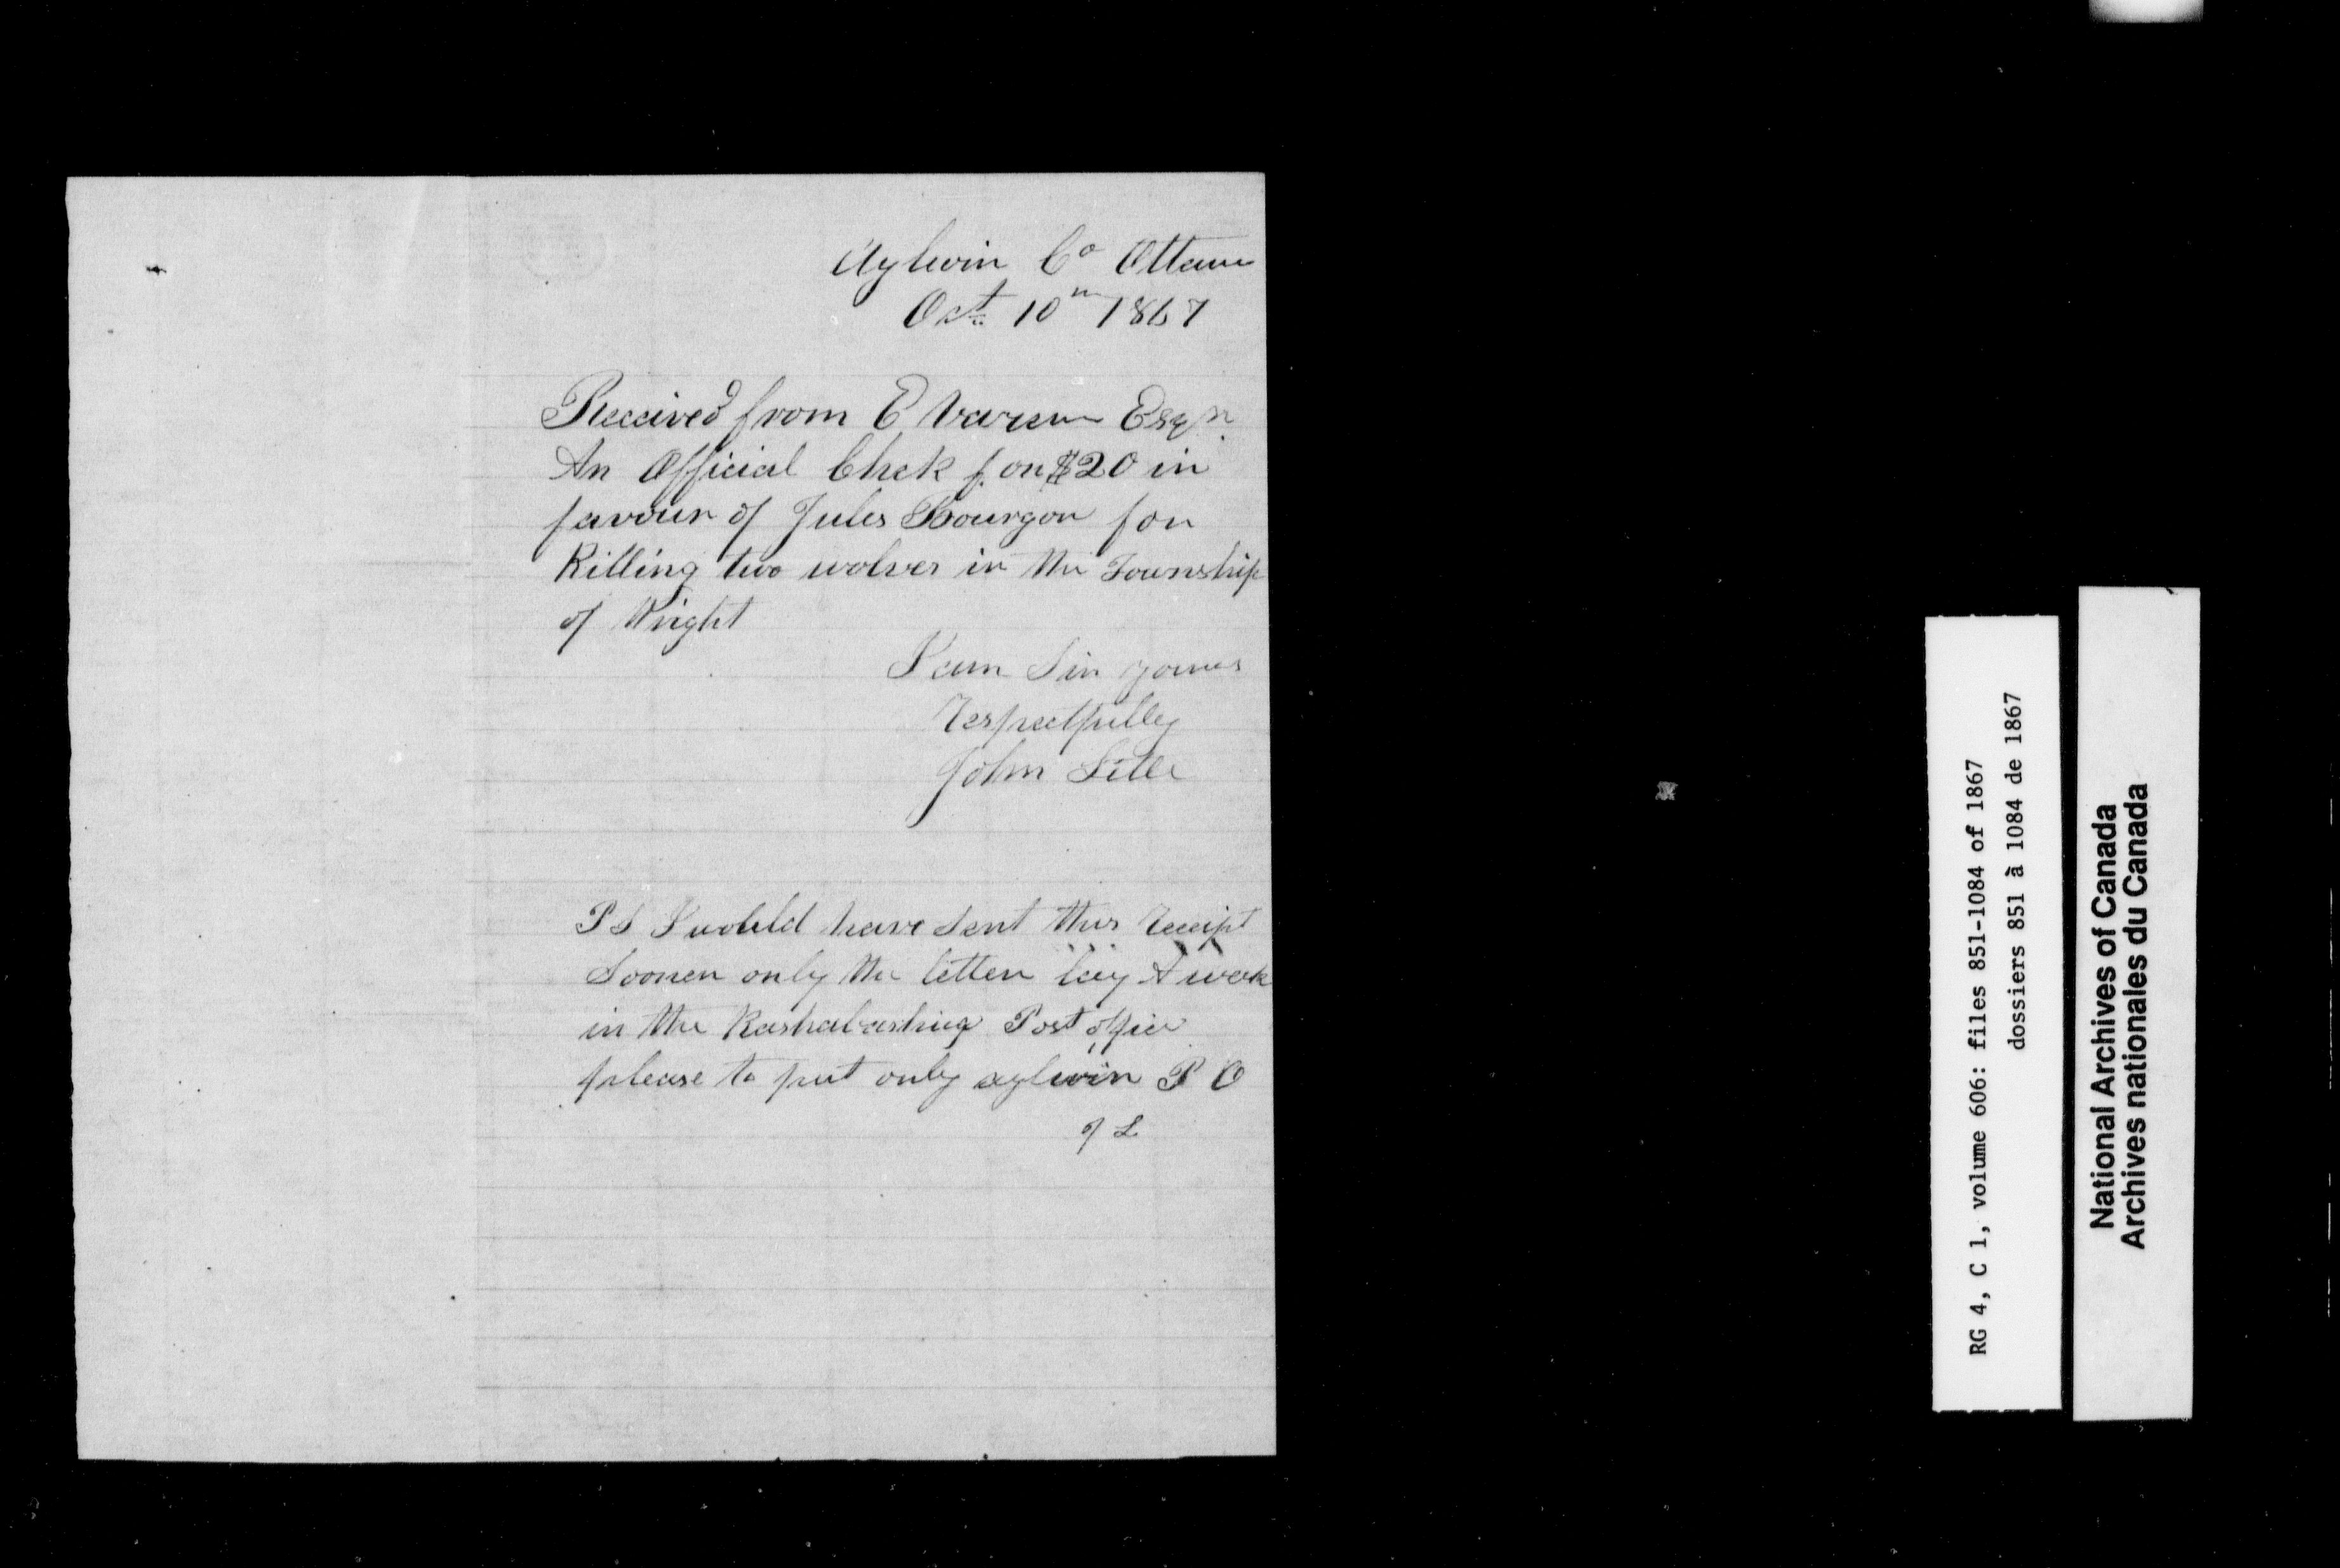 Aylwin Co Ottawa
Oct 10th 1867
Received from E Esqr
An Official Chek for $20 in
favour of Jules Bourgon for
Killing two wolves in the Township
of Wright
I am Sir yours
respectfully
John
PS I would have sent this receipt
Sooner only the letter lay A week
in the Post office
please to put only aylwin P O
J L
RG 4, C 1, volume 606: files 851-1084 of 1867
dossiers 851 à 1084 de 1867
National Archives of Canada
Archives nationales du Canada